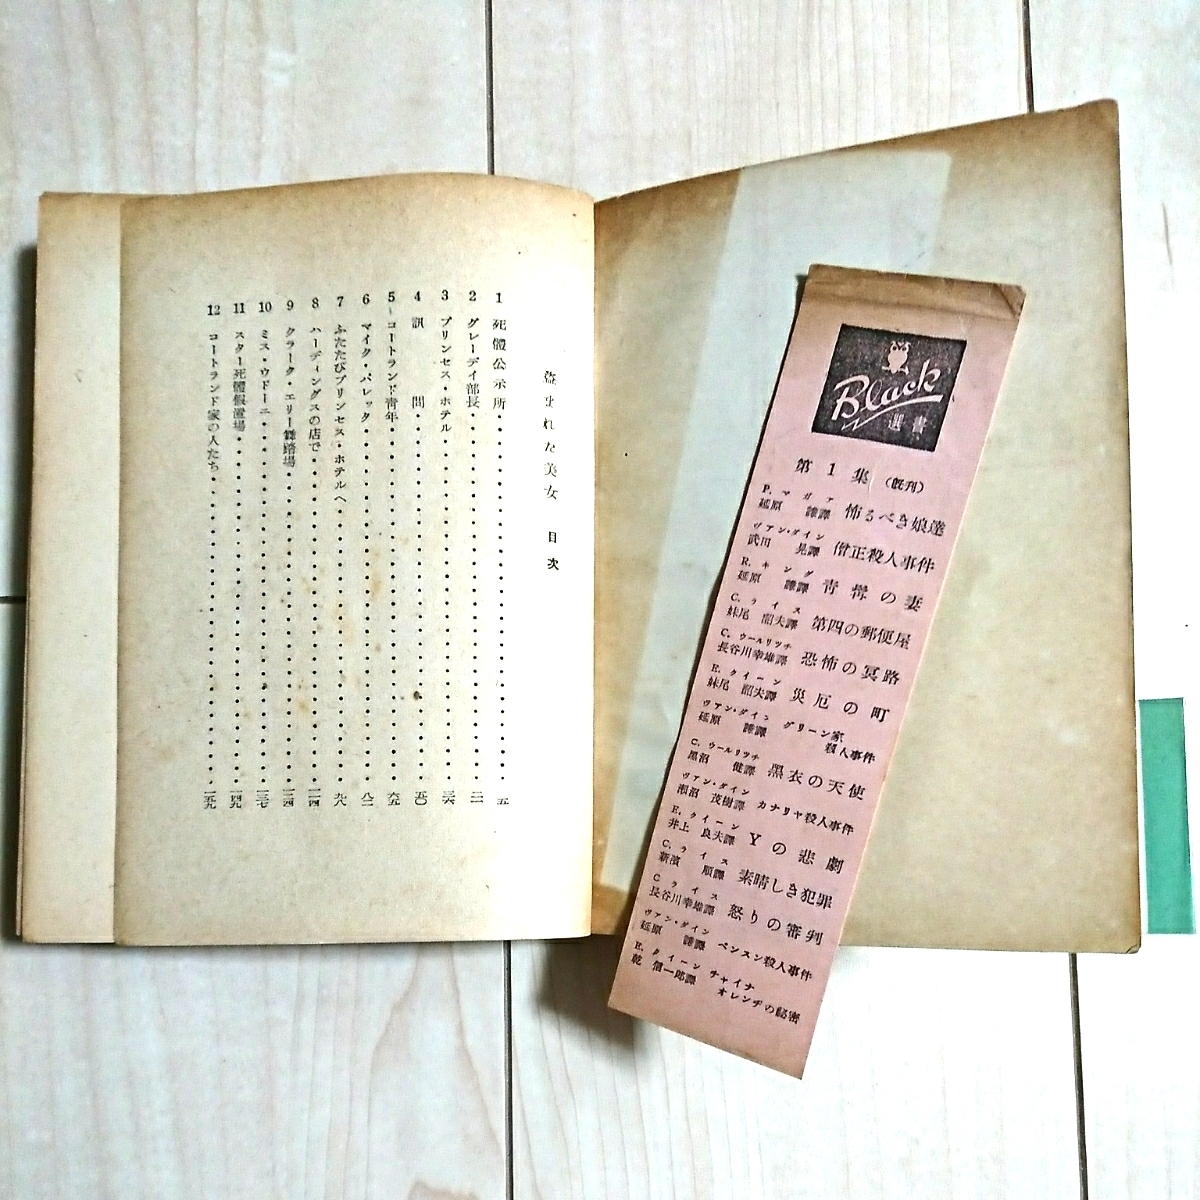 盗まれた美女 目次
1 死體公示所 五
2 グレーデイ部長 二一
3 プリンセス・ホテル 三六
4 訊問 五〇
5 コートランド青年 六五
6 マイク・バレッタ 八二
7 ふたたびプリンセス・ホテルへ 九八
8 ハーディングスの店で 一一四
9 クラーク・エリー舞踏場 一二四
10 ミス・ウドーニ 一三七
11 スター死體假置場 一四九
12 コートランド家の人たち 一五九
Black
選書
第1集(既刊)
P. マガア
延原 謙譯 怖るべき娘達
ヴァン・ダイン
武田 晃譯 僧正殺人事件
R. キング
延原 謙譯 青髯の妻
C. ライス
妹尾 韶夫譯 第四の郵便屋
C. ウールリッチ
長谷川幸雄譯 恐怖の冥路
E. クイーン
妹尾 韶夫譯 災厄の町
ヴァン・ダイン
延原 謙譯 グリーン家
殺人事件
C. ウールリッチ
黒沼 健譯 黒衣の天使
ヴァン・ダイン
瀬沼 茂樹譯 カナリヤ殺人事件
E. クイーン
井上 良夫譯 Yの悲劇
C. ライス
新濱 順譯 素晴しき犯罪
C ライス
長谷川幸雄譯 怒りの審判
ヴァン・ダイン
延原 謙譯 ベンスン殺人事件
E. クイーン
乾 信一郎譯 チャイナ
オレンヂの秘密